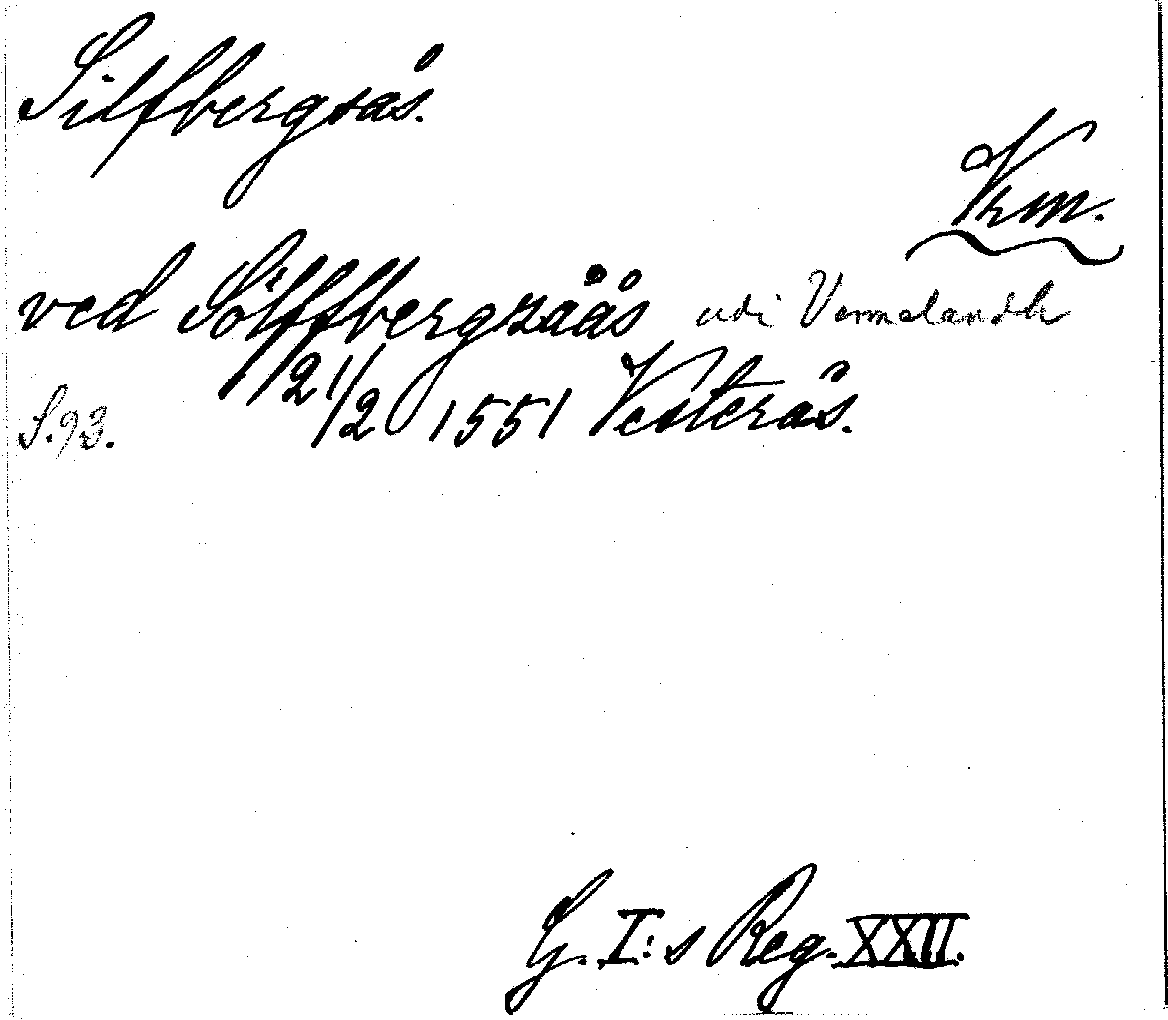 Silfbergsås.
Vrm.
ved Sölffbergzåås udi Vermelandh
21/2 1551 Vesterås.
S. 93.
G. I:s Reg. XXII.